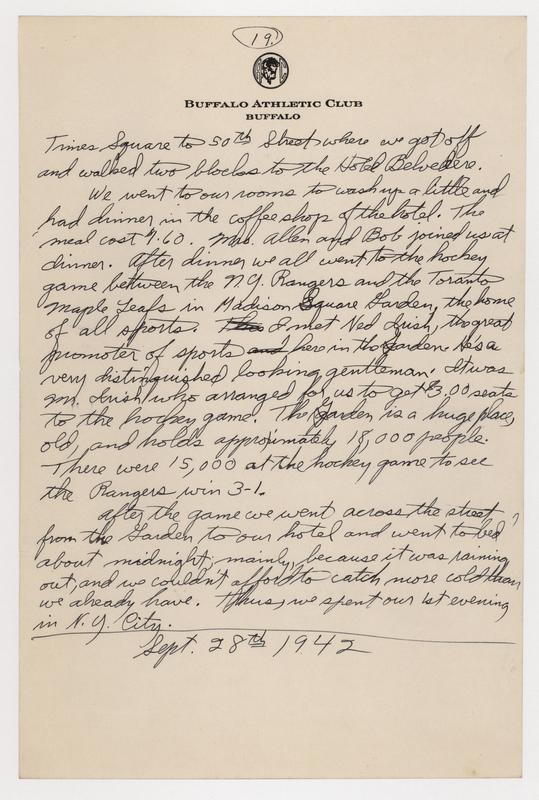 19.
BUFFALO ATHLETIC CLUB
BUFFALO
Times Square to 50th Street where we got off
and walked two blocks to the Hotel Belvedere.
We went to our rooms to wash up a little and
had dinner in the coffee shop of the hotel. The
meal cost $1.60. Mrs. Allen and Bob joined us at
dinner. After dinner we all went to the hockey
game between the N.Y. Rangers and the Toranto
Maple Leafs in Madison Square Garden, the home
of all sports. I met Ned Irish, the great
promoter of sports and here in the Garden. He's a
very distinguished looking gentleman. It was
Mr. Irish who arranged for us to get $3.00 seats
to the hockey game. The Garden is a huge place,
old, and holds approximately 18,000 people.
There were 15,000 at the hockey game to see
the Rangers win 3-1.
After the game we went across the street
from the Garden to our hotel and went to bed
about midnight, mainly, because it was raining
out, and we couldn't afford to catch more cold than
we already have. Thus, we spent our 1st evening
in N.Y. City.
Sept. 28th 1942